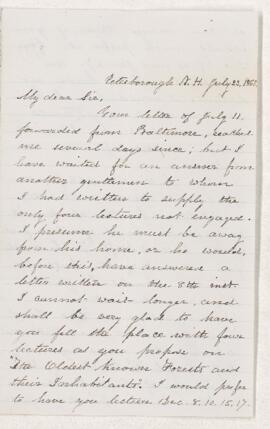 Peterborough N. H. July 23, 186
My dear Sir,
Your letter of July 11.
forwarded from Baltimore, reached
me several days since; but I
have waited for an answer from
another gentleman to whom
I had written to supply the
only four lectures not engaged.
I presume he must be away
from his home, or he would,
before this, have answered a
letter written on the 8th inst.
I cannot wait longer, and
shall be very glad to have
you fill the place with four
lectures as you propose on
"The Oldest Known Forests and
their Inhabitants. I would prefer
to have you lecture Dec. 8. 10. 15. 17.